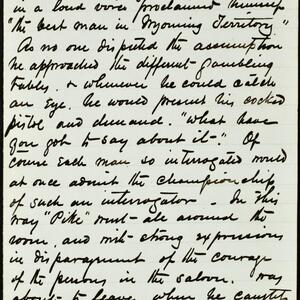 in a loud voice proclaimed himself
"the best man in Wyoming Territory."
As no one disputed the assumption
he approached the different gambling
tables, & whenever he could catch
an Eye, he would present his cocked
pistol and demand, "What have
you got to say about it-" Of
course Each man so interrogated would
at once admit the championship
of such an interrogator - In this
way "Pike" went all around the
room, and with strong expressions
in disparagement of the courage
of the persons in the saloon, was
about to leave, when he caught